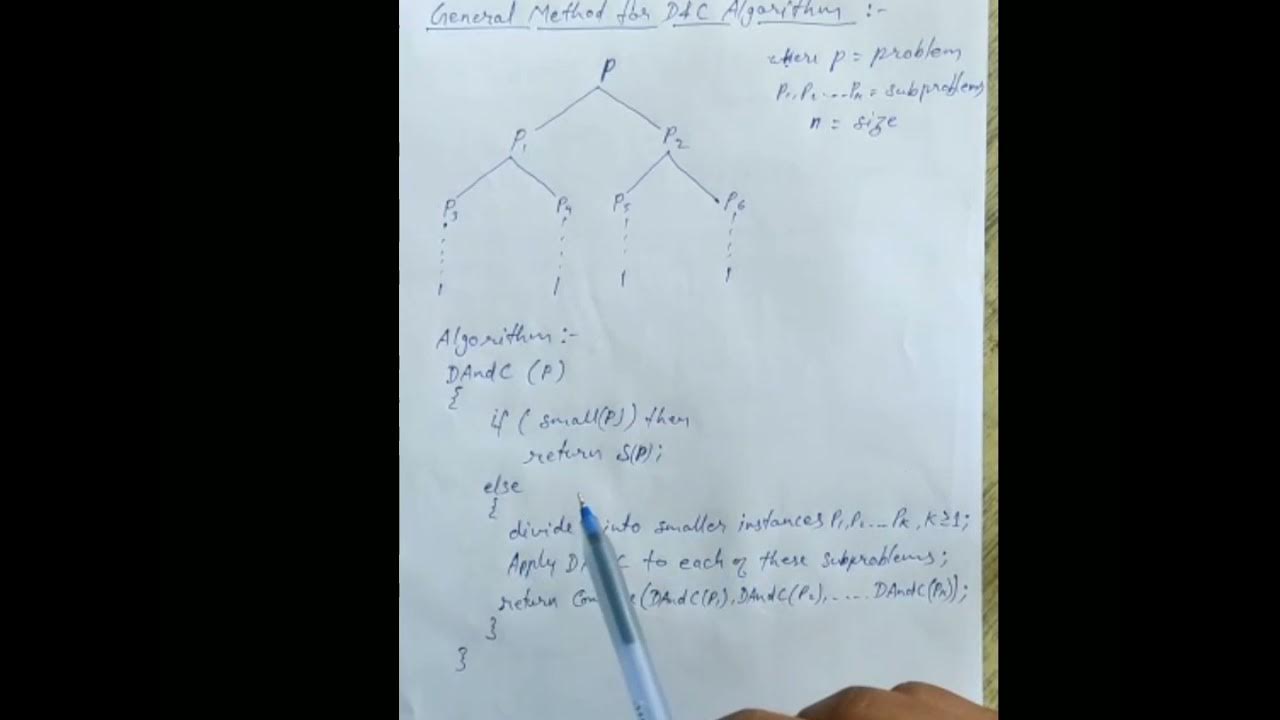 General Method for D&C Algorithm :-
where p = problem
P1, P2 .... Pn = subproblems
n = size
P
P1 P2
P3 P4 P5 P6
1 1 1 1
Algorithm :-
DAndC (P)
{
if ( small(P) ) then
return S(P);
else
{
divide into smaller instances P1, P2 ... Pk, K ≥ 1;
Apply to each of these subproblems;
return (DAndC(P1), DAndC(P2), ..... DAndC(Pn));
}
}